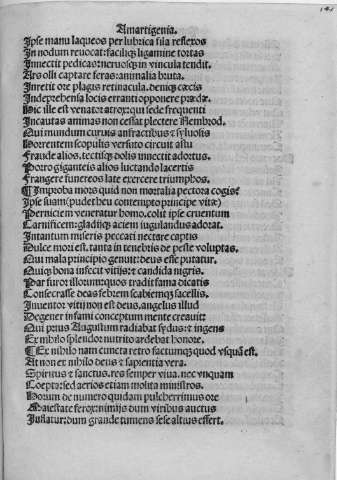 141
Amartigenia.
Ipse manu laqueos per lubrica fila reflexos
In nodum reuocat: faciliq; ligamine tortas
Innectit pedicas: neruosq; in vincula tendit.
Ars olli captare feras: animalia bruta.
Inretit ore plagis retinacula. deniq; cæcis
Indeprehensa locis erranti opponere prædæ.
Hic ille est venator atrox: qui sede frequenti
Incautas animas non cessat plectere Nembrod.
Qui mundum curuis anfractibus & syluosis
Horrentem scopulis versuto circuit astu
Fraude alios, tectisq; dolis innectit adortus.
Porro giganteis alios luctando lacertis
Frangere funereos late exercere triumphos.
¶ Improba mors quid non mortalia pectora cogis?
Ipse suam (pudet heu contempto principe vitæ)
Perniciem veneratur homo. colit ipse cruentum
Carnificem: gladiiq; aciem iugulandus adorat.
Intantum miseris peccati nectare captis
Dulce mori est. tanta in tenebris de peste voluptas.
Qui mala principio genuit: deus esse putatur.
Quiq; bona infecit vitijs: & candida nigris.
Par furor illorum: quos tradit fama dicatis
Consecrasse deas febrem scabiemq; sacellis.
Inuentor vitij non est deus. angelus illud
Degener infami conceptum mente creauit:
Qui prius Augustum radiabat sydus: & ingens
Ex nihilo splendor nutrito ardebat honore.
¶ Ex nihilo nam cuncta retro factumq; quod vsquã est.
At non ex nihilo deus & sapientia vera.
Spiritus & sanctus. res semper viua. nec vnquam
Coepta: sed aerios etiam molita ministros.
Horum de numero quidam pulcherrimus ore
Maiestate ferox: nimijs dum viribus auctus
Inflatur: dum grande tumens sese altius effert.